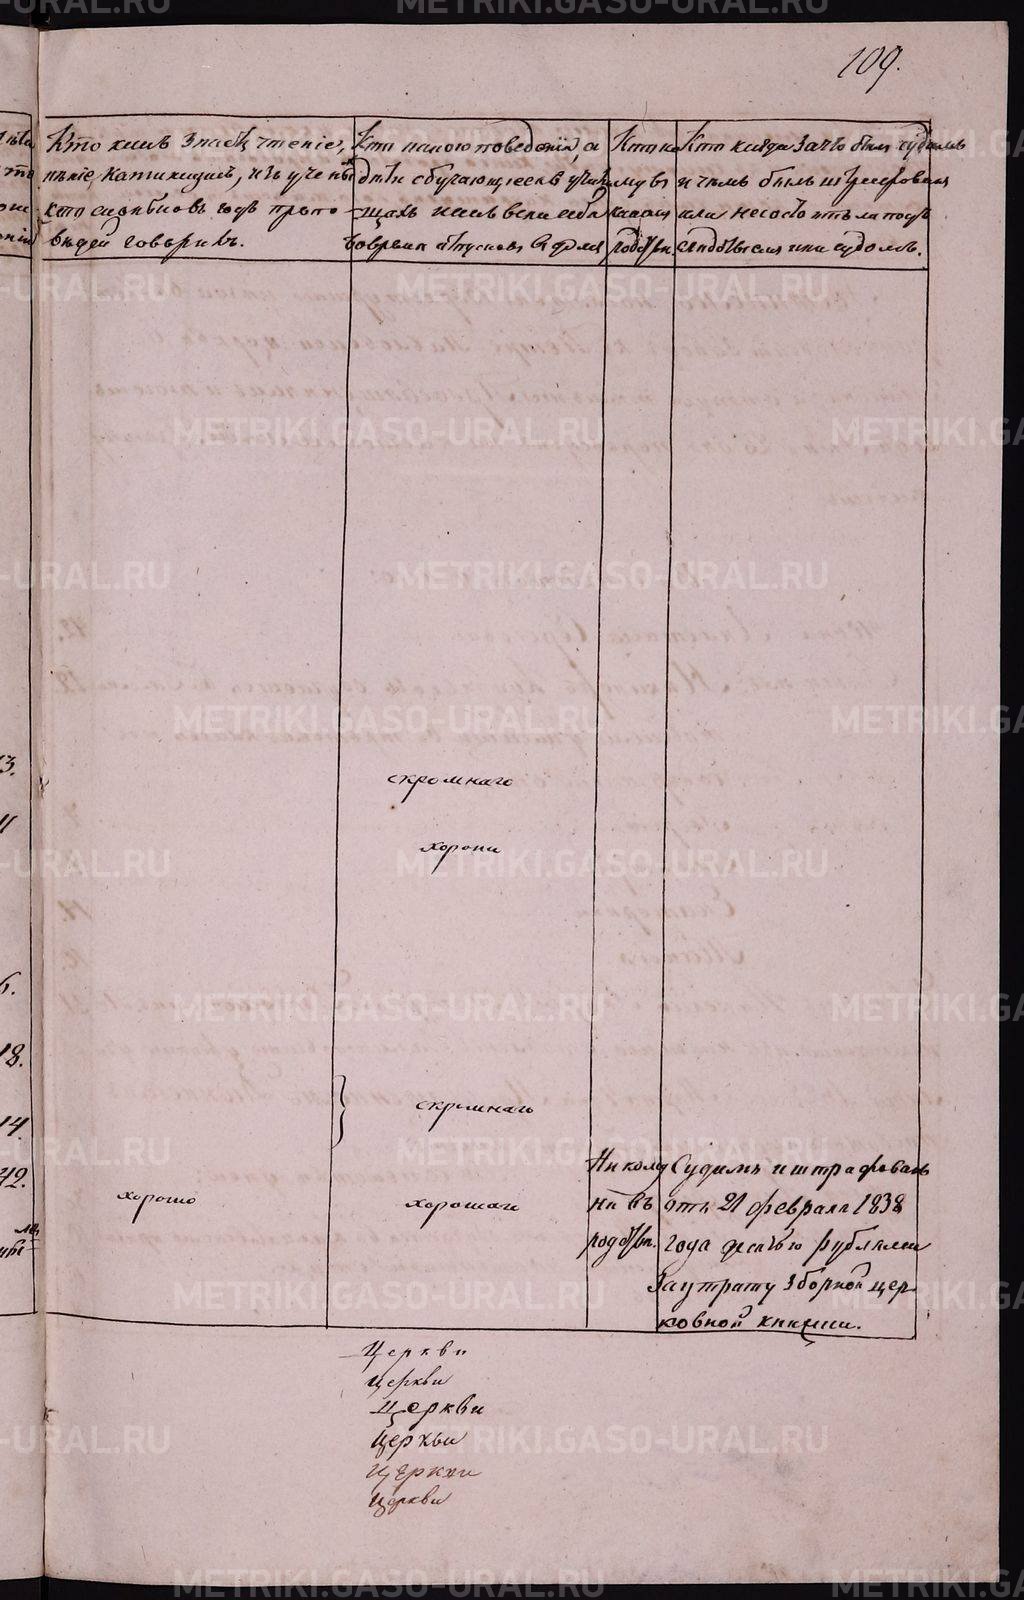 109.
Кто какъ знаетъ чтеніе,
пѣніе, катихизисъ, изъ ученый
кто сколько въ годъ пропо-
вѣдей говорилъ.
Кто какого поведенія, а
дѣти обучающіеся въ учили-
щахъ какъ вели себя
во время отпусковъ
Кто ко
му въ
какомъ
родствѣ.
Кто когда за что былъ судимъ
и чѣмъ былъ штрафованъ
или не состоитъ ли подъ
слѣдствіемъ или судомъ.
3.
11
скромнаго
хороши
6.
18.
14.
скромнаго
42.
хорошо
хорошаго
Никому
не въ
родствѣ.
Судимъ и штрафованъ
отъ 21 февраля 1838
года десятью рублями
за утрату зборной цер-
ковной книжки.
Церкви
Церкви
Церкви
Церкви
Церкви
Церкви
METRIKI.GASO-URAL.RU